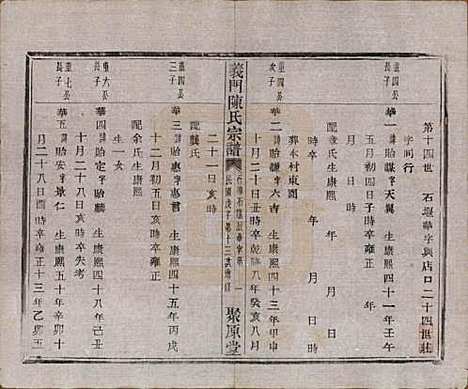 第十四世 石堰華字與店口二十四世莊
字同行
華一 諱貽謀字天翼 生康熙四十一年壬午
五月初四日子時卒雍正 年 月 日
時卒 年 月 日 時
配俞氏生康熙
葬木村東園
重四公
次子
華二 諱貽謙字大吉 生康熙四十三年甲申
十月二十日丑時卒乾隆八年癸亥八月
二十一日亥時
配魏氏
義門陳氏宗譜
民國庚子第十三次增修
聚原堂
重四公
三子
華三 諱貽惠字惠言 生康熙四十五年丙戌
十二月初五日亥時卒
配余氏生康熙
生一女
重六公
長子
華四 諱貽定字麟 生康熙四十八年己丑
十月二十八日亥時卒失考
重七公
長子
華五 諱貽安字景仁 生康熙五十年辛卯十
月二十八日酉時卒雍正十三年乙卯